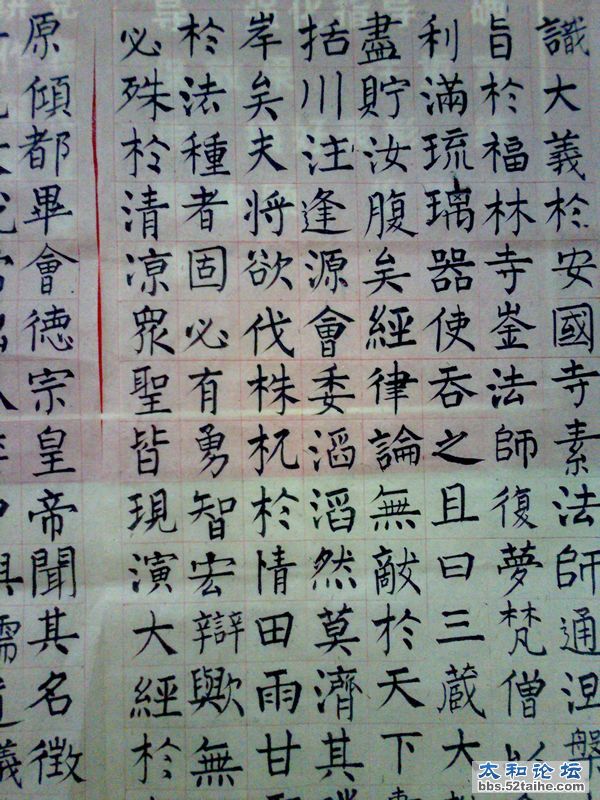 識大義於安國寺素法師通涅槃
旨於福林寺崟法師復夢梵僧以
利滿琉璃器使吞之且曰三藏大
盡貯汝腹矣經律論無敵於天下
括川注逢源會委滔滔然莫濟其
岸矣夫將欲伐株杌於情田雨甘
於法種者固必有勇智宏辯歟無
必殊於清凉眾聖皆現演大經於
原傾都畢會德宗皇帝聞其名徵
太和论坛
bbs.52taihe.com